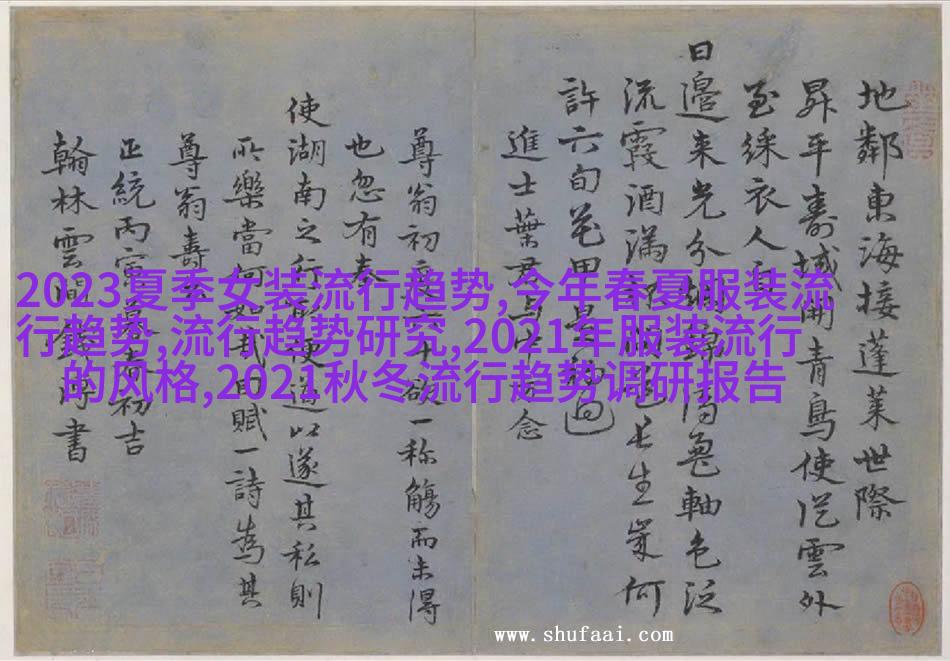 地鄰東海接蓬萊世際
昇平壽域開青鳥使從雲外
至綵衣人自
日邊來光分龜軸色泛
流霞酒滿長生策何
許六旬花甲
進士葉君念
尊翁初欲一称觴而未得
也忽有奉
使湖南之行便道以遂其私則
所樂當何如哉因賦一詩為其
尊翁壽
正統丙寅暮春初吉
翰林雲間錢溥書
2023夏季女装流行趋势,今年春夏服装流
行趋势,流行趋势研究,2021年服装流行
的风格,2021秋冬流行趋势调研报告
www.shufaai.com